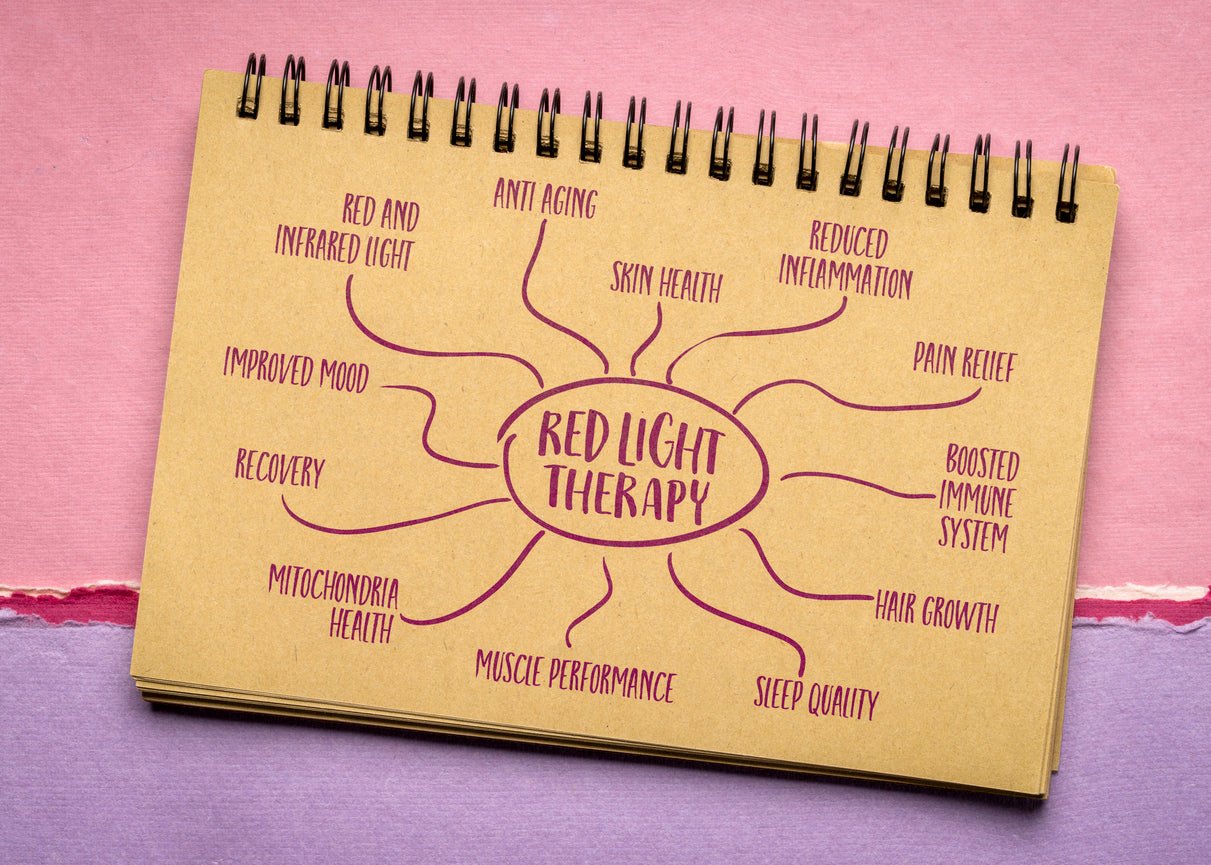 ANTI AGING
RED AND
INFRARED LIGHT
SKIN HEALTH
REDUCED
INFLAMMATION
IMPROVED MOOD
PAIN RELIEF
RED LIGHT
THERAPY
RECOVERY
BOOSTED
IMMUNE
SYSTEM
MITOCHONDRIA
HEALTH
HAIR GROWTH
MUSCLE PERFORMANCE
SLEEP QUALITY